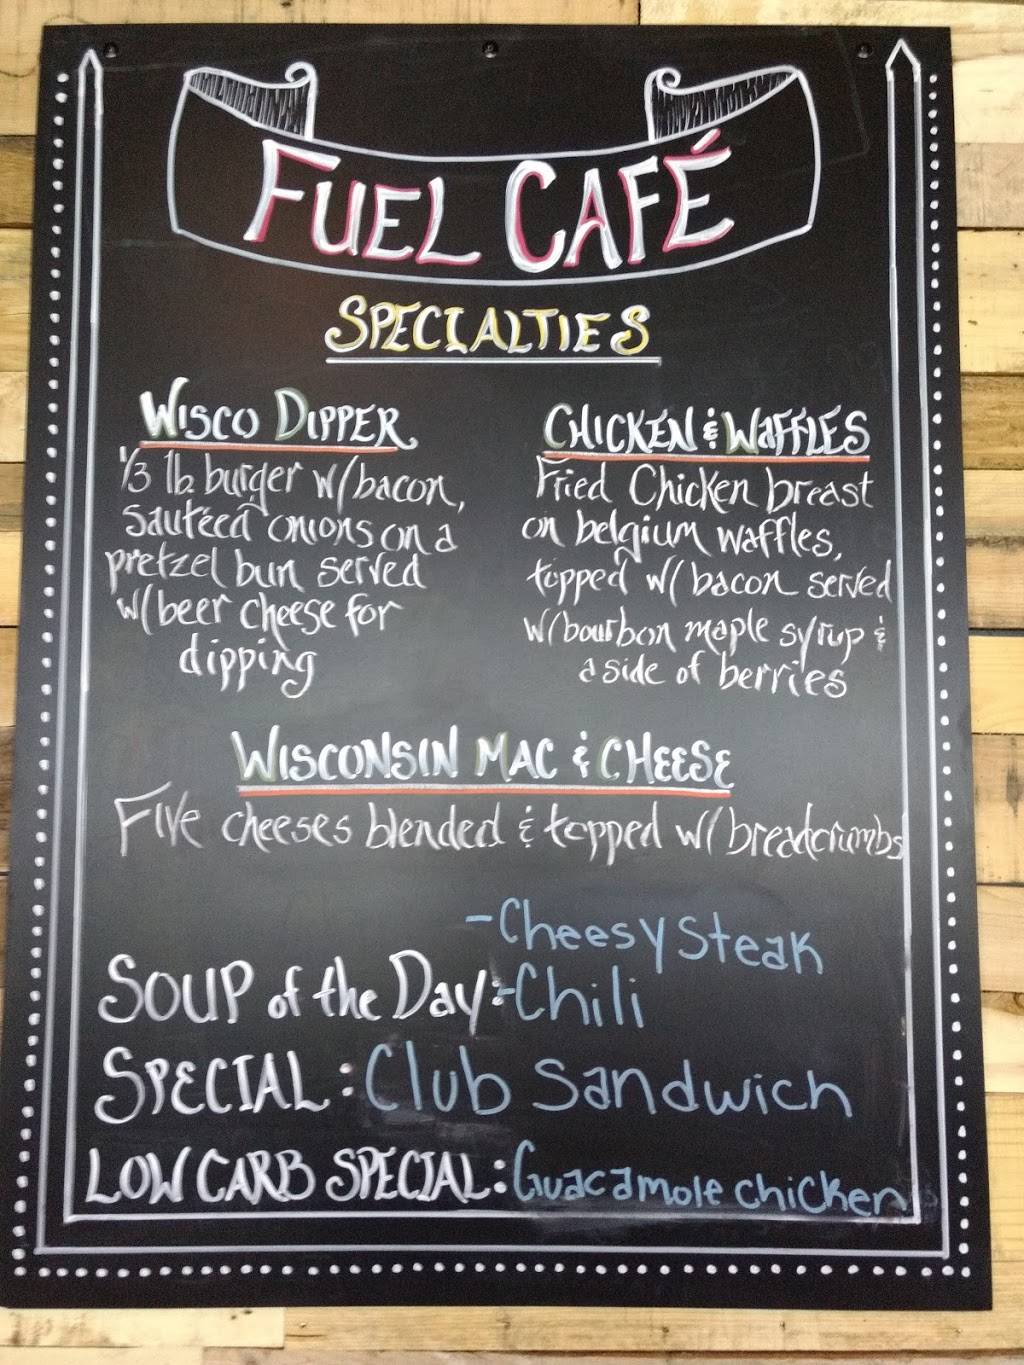 FUEL CAFÉ
SPECIALTIES
WISCO DIPPER
1/3 lb burger w/bacon,
sautéed onions on a
pretzel bun served
w/beer cheese for
dipping
CHICKEN & WAFFLES
Fried Chicken breast
on belgium waffles,
topped w/ bacon served
w/bourbon maple syrup &
a side of berries
WISCONSIN MAC & CHEESE
Five cheeses blended & topped w/ breadcrumbs
-Cheesy Steak
SOUP of the Day:-Chili
SPECIAL: Club Sandwich
LOW CARB SPECIAL: Guacamole chicken